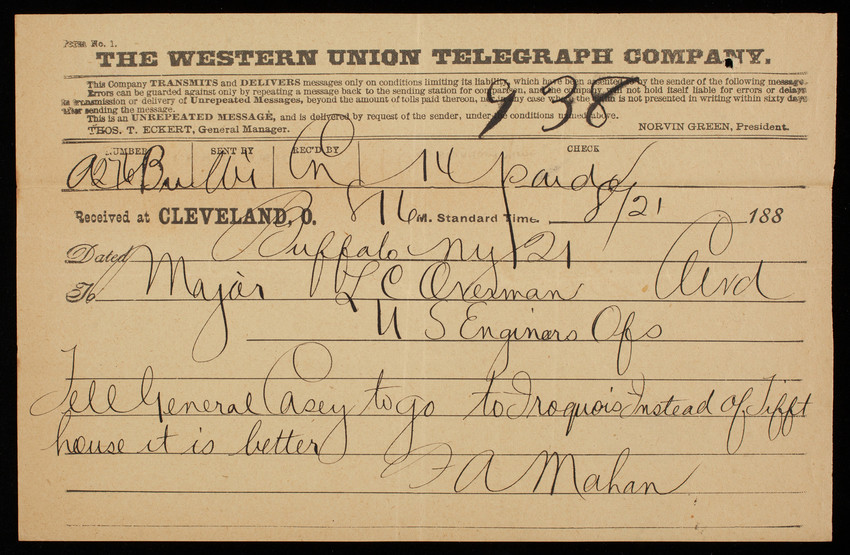 Form No. 1.
THE WESTERN UNION TELEGRAPH COMPANY.
938
This Company TRANSMITS and DELIVERS messages only on conditions limiting its liability, which have been assented to by the sender of the following message.
Errors can be guarded against only by repeating a message back to the sending station for comparison, and the company will not hold itself liable for errors or delays
in transmission or delivery of Unrepeated Messages, beyond the amount of tolls paid thereon, nor in any case where the claim is not presented in writing within sixty days
after sending the message.
This is an UNREPEATED MESSAGE, and is delivered by request of the sender, under the conditions named above.
THOS. T. ECKERT, General Manager. NORVIN GREEN, President.
NUMBER SENT BY REC'D BY CHECK
14 paid
Received at CLEVELAND, O. 816 M. Standard Time. 8/21 188
Dated Buffalo NY 21
To Major L C Overman Clvd
U S Enginers Ofs
Tell General Casey to go to Iroquois Instead of Tifft
house it is better
F A Mahan